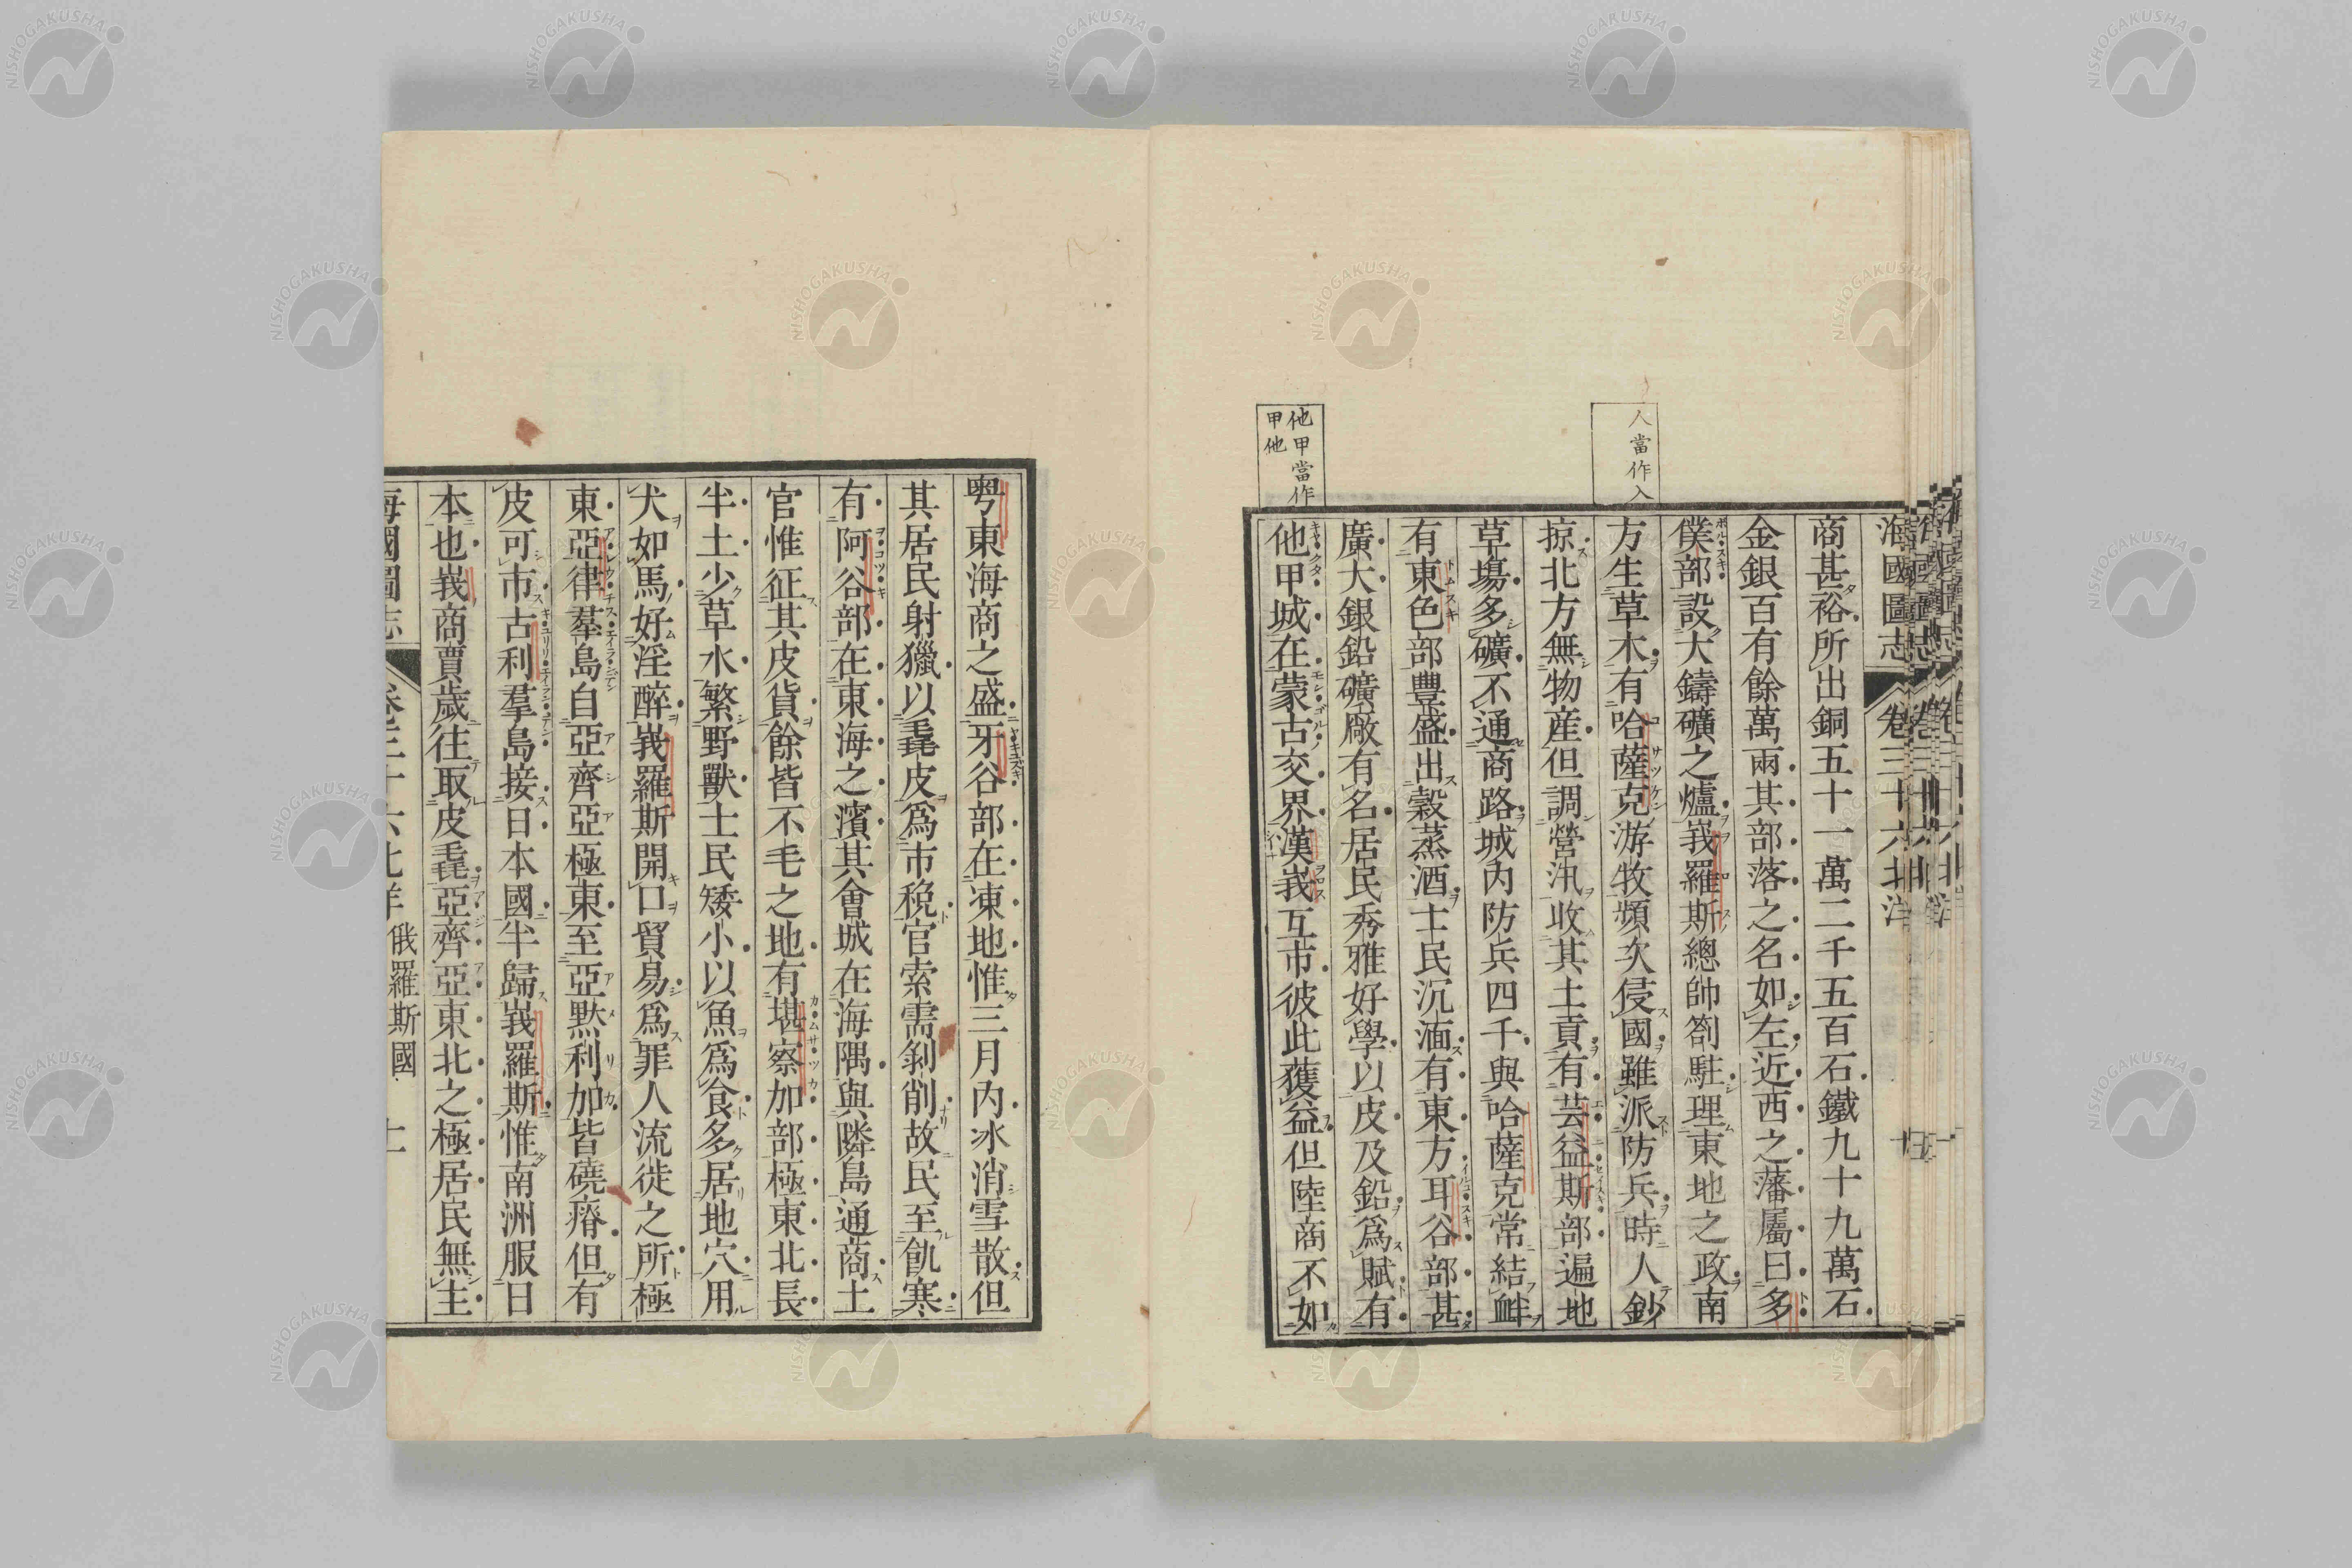 人當作入
他甲當作
甲他
海國圖志 卷三十六 北洋
商甚裕所出銅五十一萬二千五百石鐵九十九萬石
金銀百有餘萬兩其部落之名如左近西之藩屬曰多
僕部設大鑄礦之爐峩羅斯總帥劄駐理東地之政南
方生草木有哈薩克游牧頻次侵國雖派防兵時人鈔
掠北方無物産但調營汛收其土貢有芸益斯部遍地
草塲多礦不通商路城內防兵四千與哈薩克常結衅
有東色部豐盛出穀蒸酒士民沉湎有東方耳谷部甚
廣大銀鉛礦廠有名居民秀雅好學以皮及鉛爲賦有
他甲城在蒙古交界漢峩互市彼此獲益但陸商不如
粵東海商之盛牙谷部在凍地惟三月內冰消雪散但
其居民射獵以毳皮爲市稅官索需剝削故民至飢寒
有阿谷部在東海之濱其會城在海隅與隣島通商土
官惟征其皮貨餘皆不毛之地有堪察加部極東北長
半土少草水繁野獸士民矮小以魚爲食多居地穴用
犬如馬好淫醉峩羅斯開口貿易爲罪人流徙之所極
東亞律羣島自亞齊亞極東至亞黙利加皆磽瘠但有
皮可市古利羣島接日本國半歸峩羅斯惟南洲服日
本也峩商賈歲往取皮毳亞齊亞東北之極居民無主
海國圖志 卷三十六 北洋 俄羅斯國
NISHOGAKUSHA